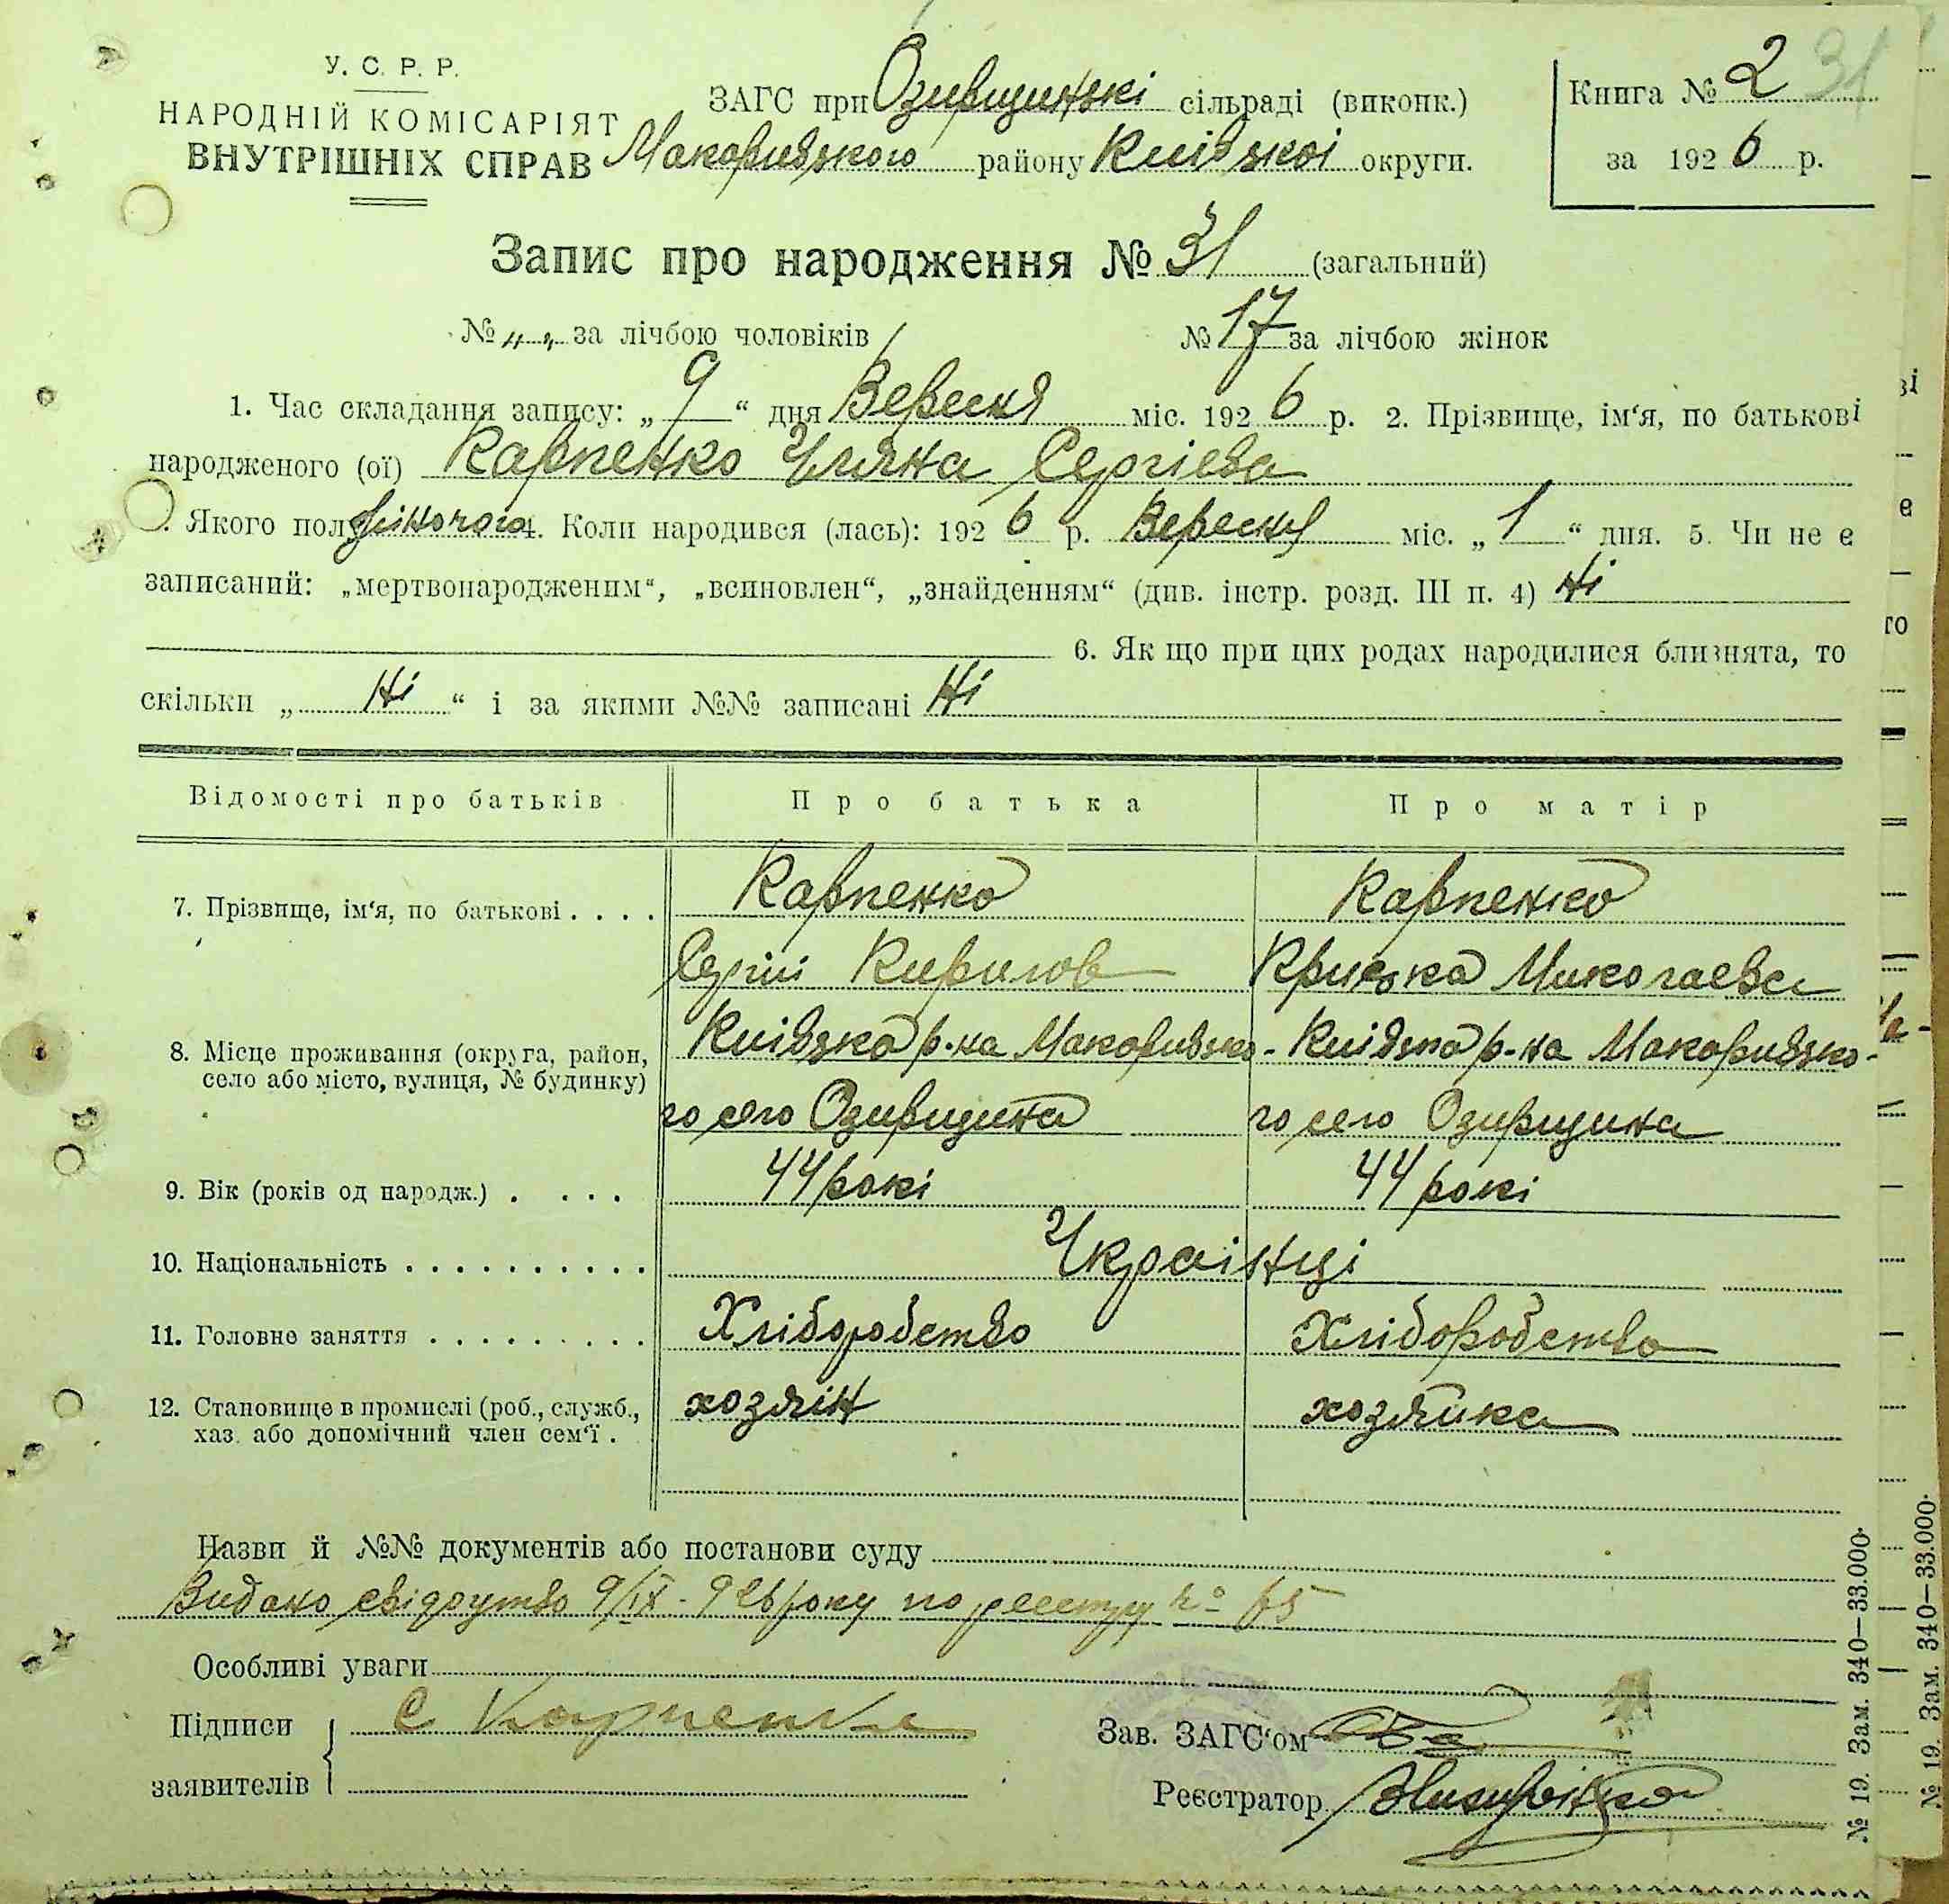 У. С. Р. Р.
НАРОДНІЙ КОМІСАРІЯТ
ВНУТРІШНІХ СПРАВ
ЗАГС при Озирщинські сільраді (виконк.)
Макарівського району Киівської округи.
Книга № 2 31
за 1926 р.
Запис про народження № 31 (загальний)
№ „ „ за лічбою чоловіків № 17 за лічбою жінок
1. Час складання запису: „9“ дня Вересня міс. 1926 р. 2. Прізвище, ім‘я, по батькові
народженого (ої) Карпенко Уляна Сергієва
. Якого пол жіночого 4. Коли народився (лась): 1926 р. Вересня міс. „1“ дня. 5. Чи не є
записаний: „мертвонародженим“, „всиновлен“, „знайденням“ (див. інстр. розд. III п. 4) Ні
6. Як що при цих родах народилися близнята, то
скільки „Ні“ і за якими №№ записані Ні
Відомості про батьків Про батька Про матір
7. Прізвище, ім‘я, по батькові . . . . Карпенко Карпенко
Сергій Кирилов Криська Миколаєва
8. Місце проживання (округа, район, Киівska р-на Макарівсько- Киівська р-на Макарівсько-
село або місто, вулиця, № будинку) го село Озирщина го село Озирщина
9. Вік (років од народж.) . . . . 44 рокі 44 рокі
10. Національність . . . . . . . . . . Українці
11. Головне заняття . . . . . . . . . Хліборобство Хліборобство
12. Становище в промислі (роб., служб., хозяїн хозяйка
хаз. або допомічний член сем‘ї .
Назви й №№ документів або постанови суду
Видано свідоцтво 9/IX - 926 року по реестру № 65
Особливі уваги
Підписи С Карпенко Зав. ЗАГС‘ом
заявителів Реєстратор
№ 19. Зам. 340—33.000.
№ 19. Зам. 340—33.000.